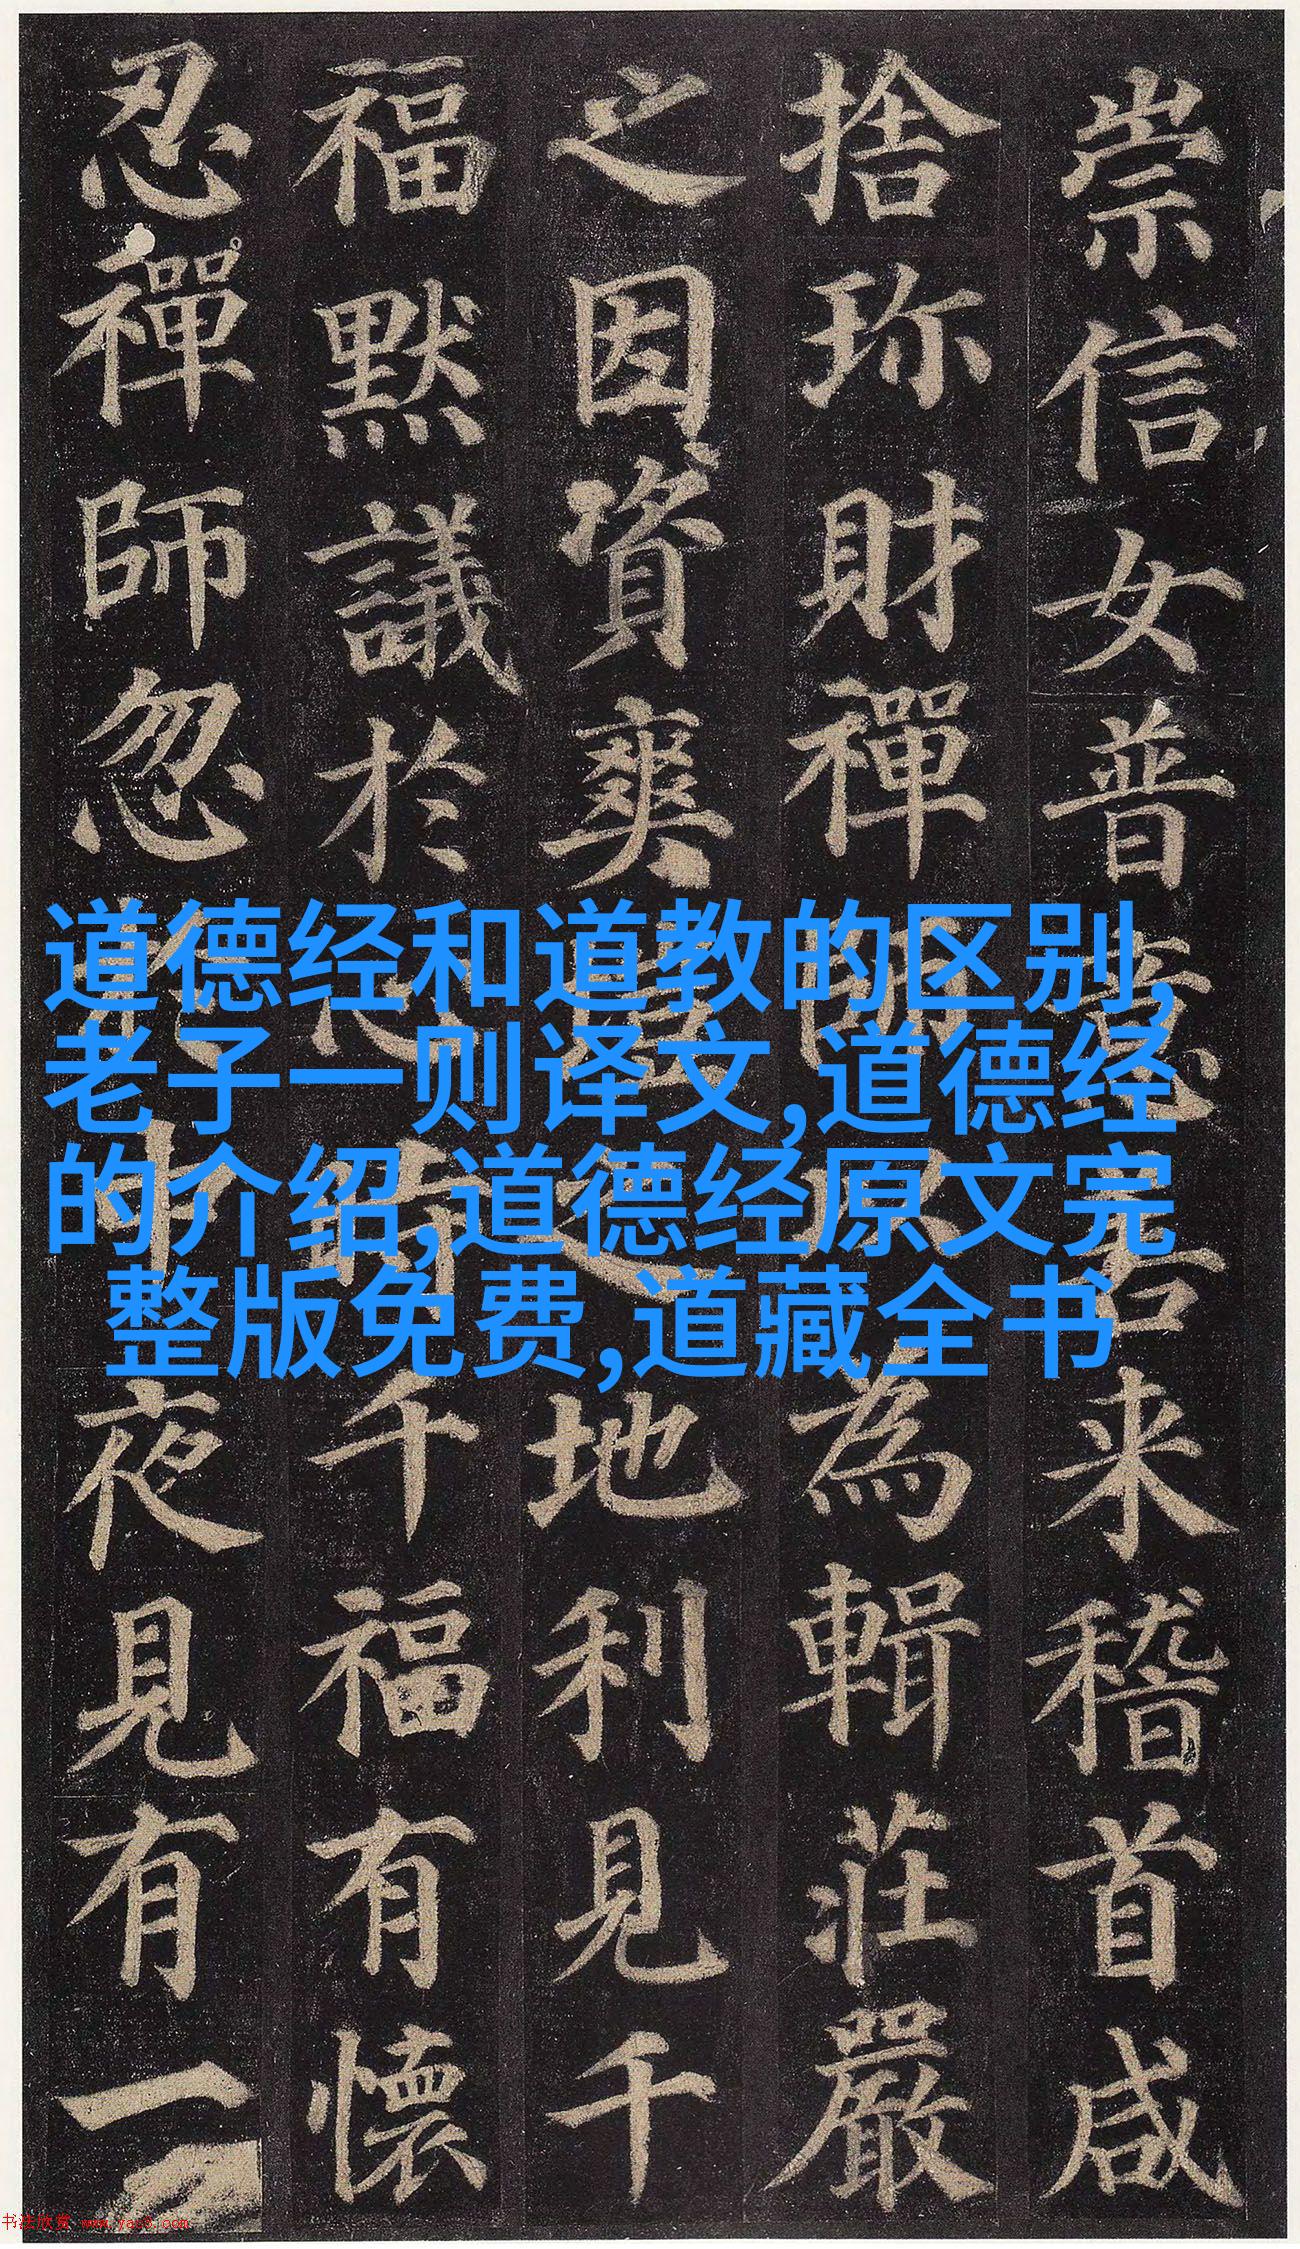 崇信女普意善来稽首咸
捨珎財禪師以為輯莊嚴
之因資爽塏之地利見千
福默議於心時千福有懷
忍禪師忽於中夜見有一
道德经和道教的区别,
老子一则译文,道德经
的介绍,道德经原文完
整版免费,道藏全书
书法欣赏 www.yac8.com